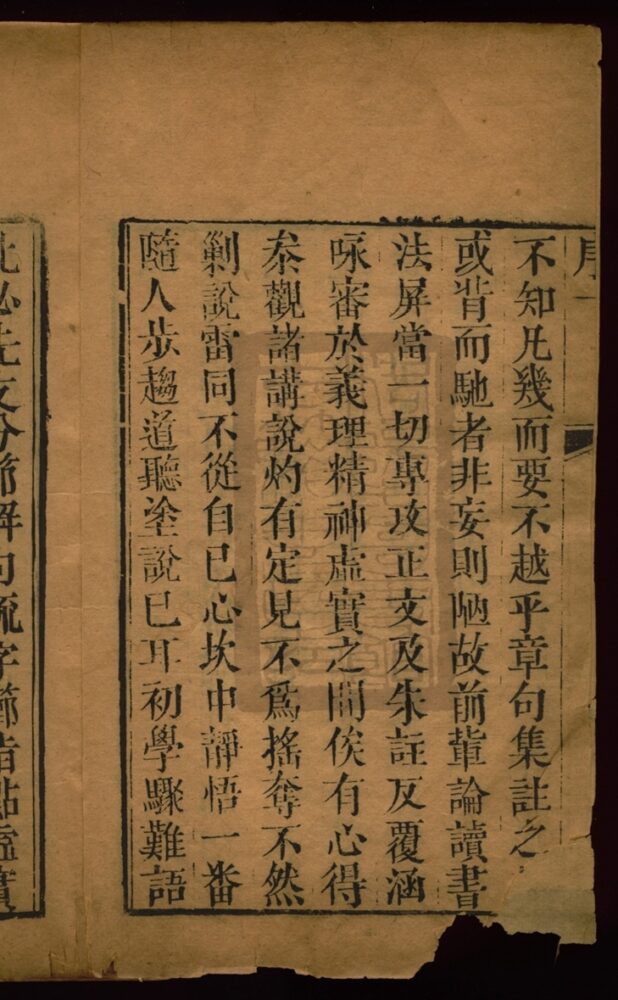 序
不知凡幾而要不越乎章句集註之
或背而馳者非妄則陋故前軰論讀書
法屏當一切專攻正文及朱註反覆涵
咏審於義理精神虛實之間俟有心得
叅觀諸講說灼有定見不爲搖奪不然
剿說雷同不從自已心坎中靜悟一番
隨人步趨道聽塗說已耳初學驟難語
此必先支分節解句疏字節指點虛實